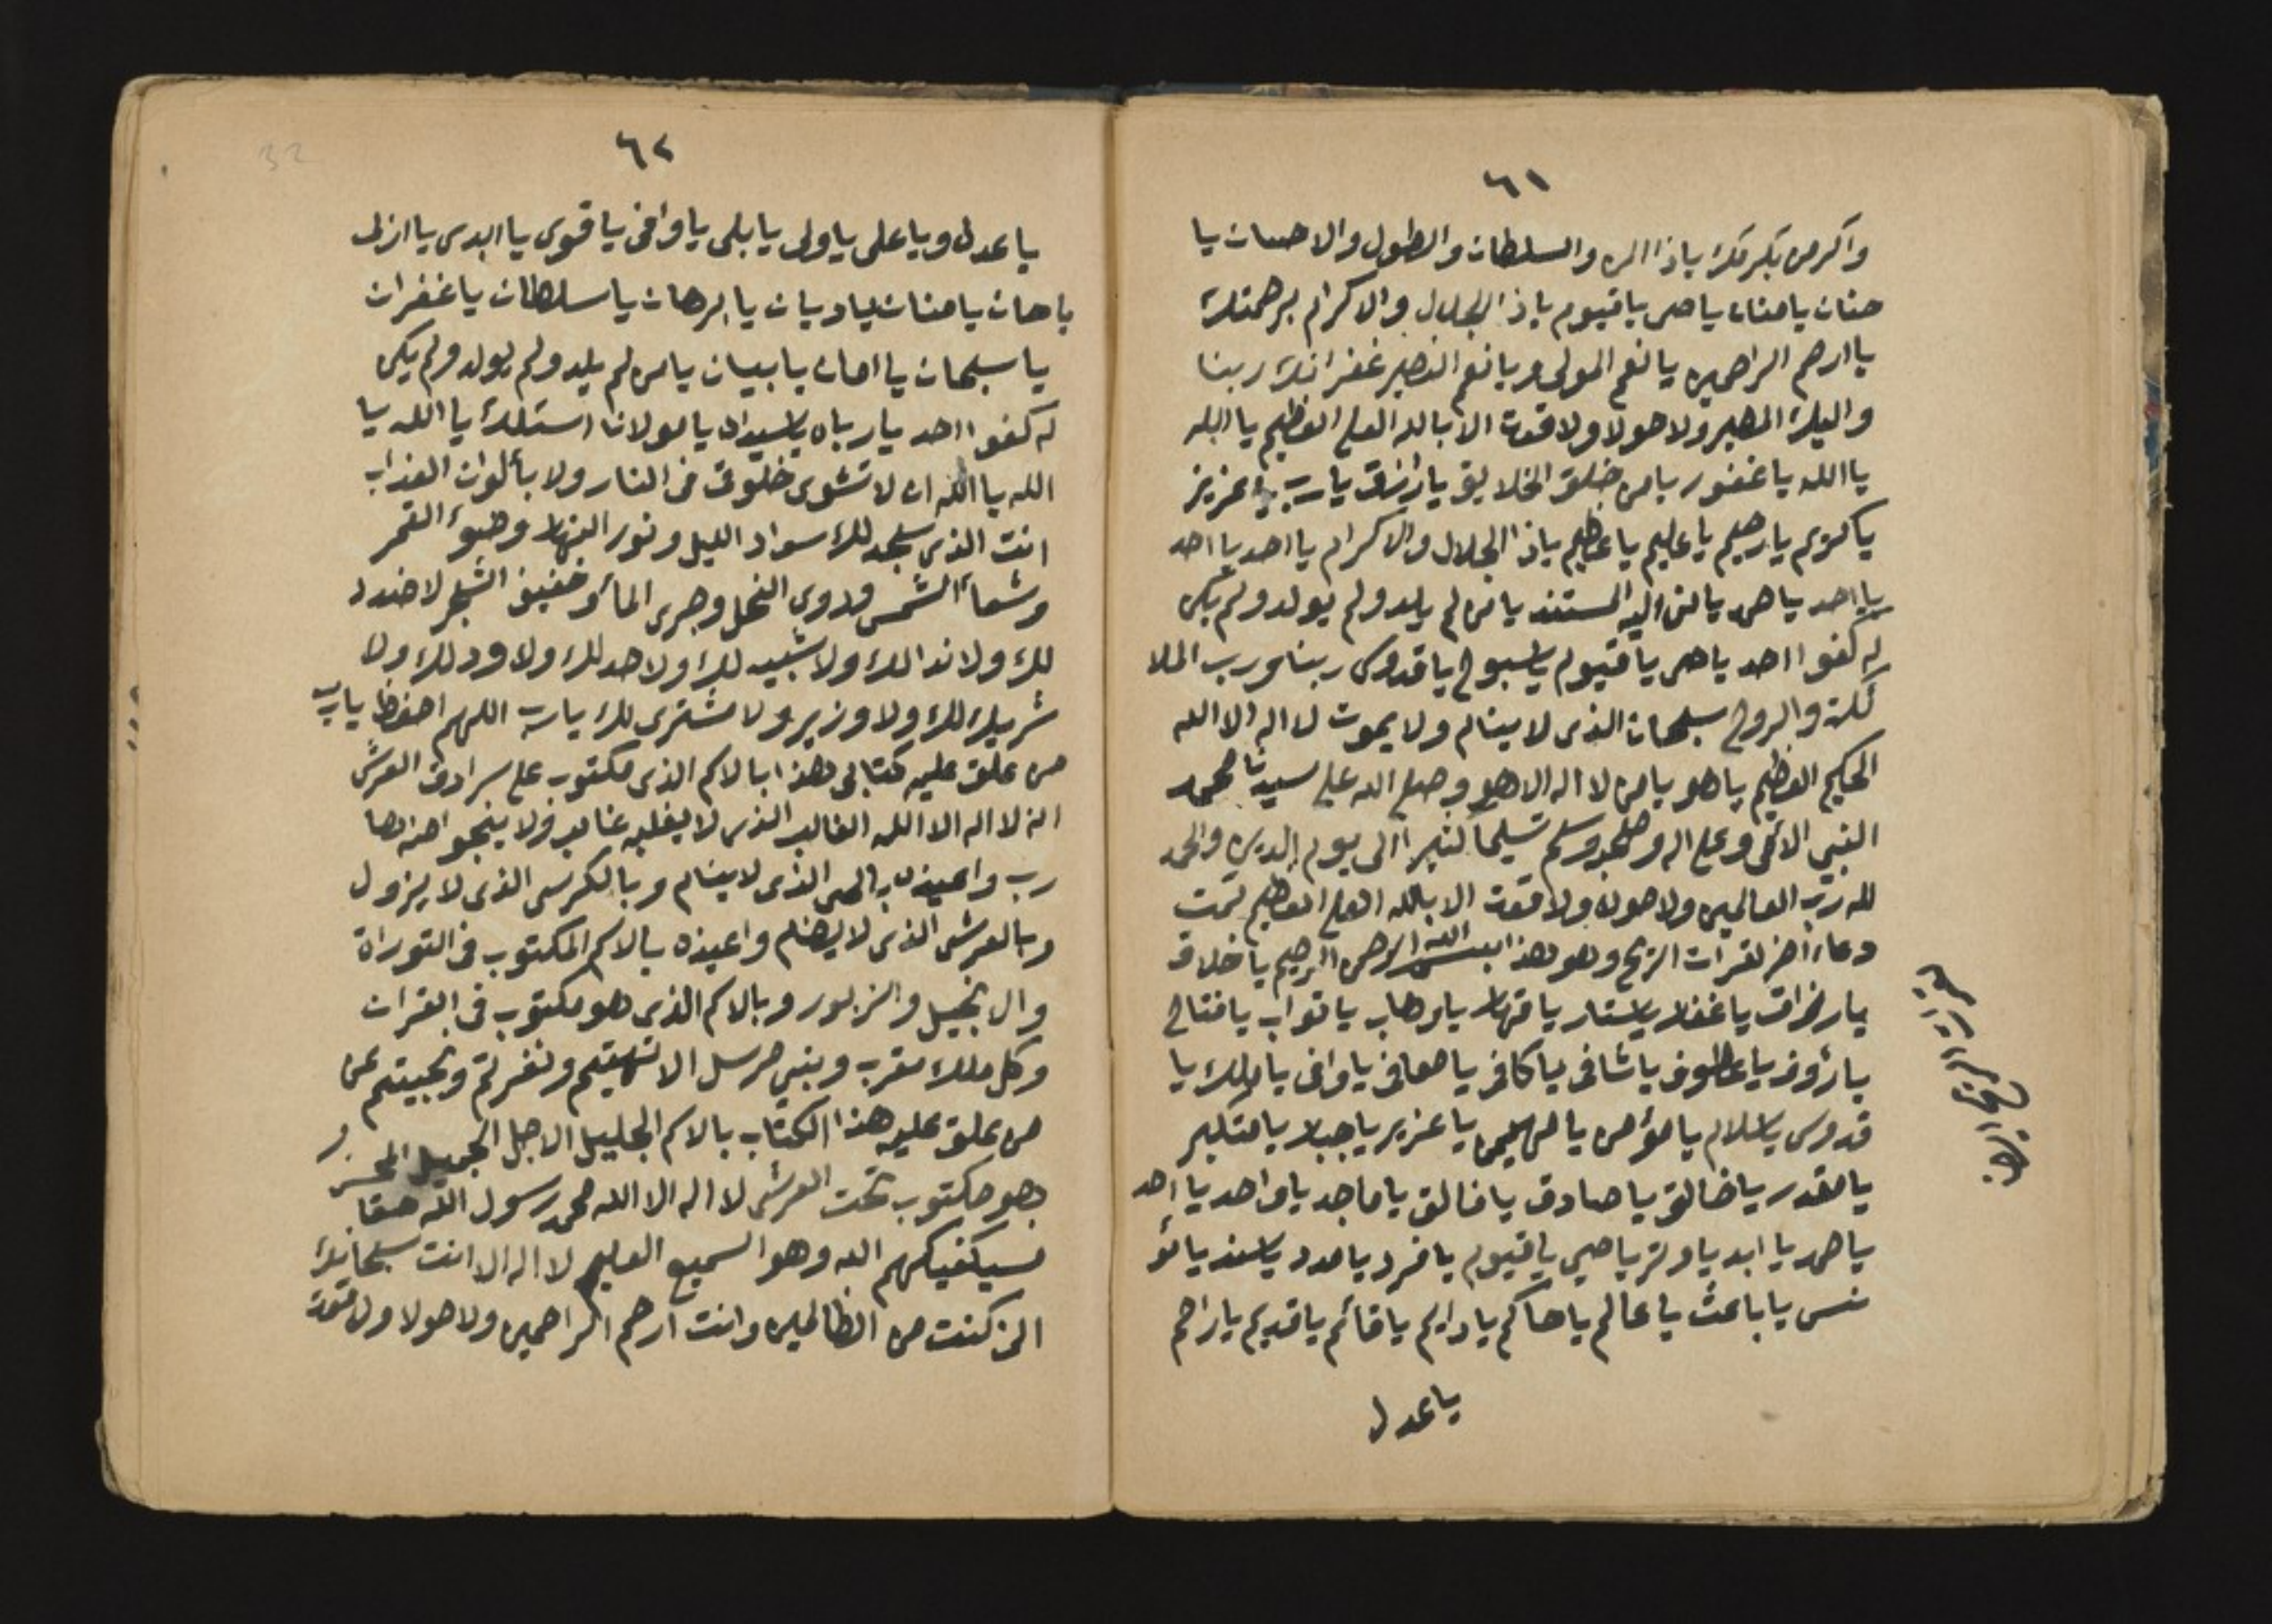 ٦١
واكرمن بكرمك ياذا المن والسلطان والطول والاحسان يا
حنان يا منان يا حى يا قيوم ياذا الجلال والاكرام برحمتك
يا ارحم الراحمين يا نعم المولى ويا نعم النصير غفرانك ربنا
واليك المصير ولا حولا ولا قوت الا بالله العلى العظيم يا الله
يا الله يا غفور يا من خلق الخلايق يا رازق يا رب يا عزيز
يا كريم يا رحيم يا عليم يا عظيم ياذا الجلال والاكرام يا احد يا احد
يا احد يا صمد يا من اليه المستند يا من لم يلد ولم يولد ولم يكن
له كفوا احد يا حى يا قيوم يا سبوح يا قدوس ربنا ورب الملا
ئكت والروح سبحان الذى لا ينام ولا يموت لا اله الا الله
الحكيم العظيم يا هو يا من لا اله الا هو وصلى الله على سيدنا محمد
النبى الامى وعلى اله وصحبه وسلم تسليما كثيرا الى يوم الدين والحمد
لله رب العالمين ولا حول ولا قوت الا بالله العلى العظيم تمت
دعاء اخر لقرات الريح وهو هذا بسم الله الرحمن الرحيم يا خلاق
يا رزاق يا غفار يا ستار يا قهار يا وهاب يا تواب يا فتاح
يا رؤوف يا عطوف يا شافى يا كافى يا معافى يا وافى يا مالك يا
قدوس يا سلام يا مؤمن يا مهيمن يا عزيز يا جبار يا متكبر
يا مقدر يا خالق يا صادق يا فالق يا ماجد يا واحد يا احد
يا صمد يا ابد يا وتر يا حى يا قيوم يا فرد يا مدد يا سند يا مؤ
نس يا باعث يا عالم يا حاكم يا دايم يا قائم يا قديم يا راحم
يا عدل
الريح
٦٢
يا عدل ويا على يا ولى يا بلى يا وافى يا قوى يا ابدى يا ازلى
يا حنان يا منان يا ديان يا برهان يا سلطان يا غفران
يا سبحان يا امان يا بيان يا من لم يلد ولم يولد ولم يكن
له كفوا احد يا رباه يا سيداه يا مولانا استلك يا الله يا
الله يا الله ان لا تشوى خلوق فى النار ولا بألوان العذاب
انت الذى سجد لك سواد الليل ونور النهار وضوء القمر
وشعاء الشمس ودوى النحل وجرى الماء وخفيف الشجر لا ضدد
لك ولا ندا لك ولا شبيه لك ولا حد لك ولا ود لك ولا
شريك لك ولا وزير ولا مشترى لك يا رب اللهم احفظ يا رب
من علق عليه كتابى هذا بالاسم الذى مكتوب على سرادق العرش
انه لا اله الا الله الغالب الذى لا يغلبه غالب ولا ينجوا منه ها
رب واعيذه بالحى الذى لا ينام وبالكرسى الذى لا يزول
وبالعرش الذى لا يضام واعيذه بالاسم المكتوب فى التوراة
والانجيل والزبور وبالاسم الذى هو مكتوب فى القران
وكل ملك مقرب ونبى مرسل الا نهيتم ونفرتم وتجيتم عن
من علق عليه هذا الكتاب بالاسم الجليل الاجل الجميل المخز و
وهو مكتوب تحت العرش لا اله الا الله محمد رسول الله حقا
فسيكفيكهم الله وهو السميع العليم لا اله الا انت سبحانك
انى كنت من الظالمين وانت ارحم الراحمين ولا حولا ولا قوت
32